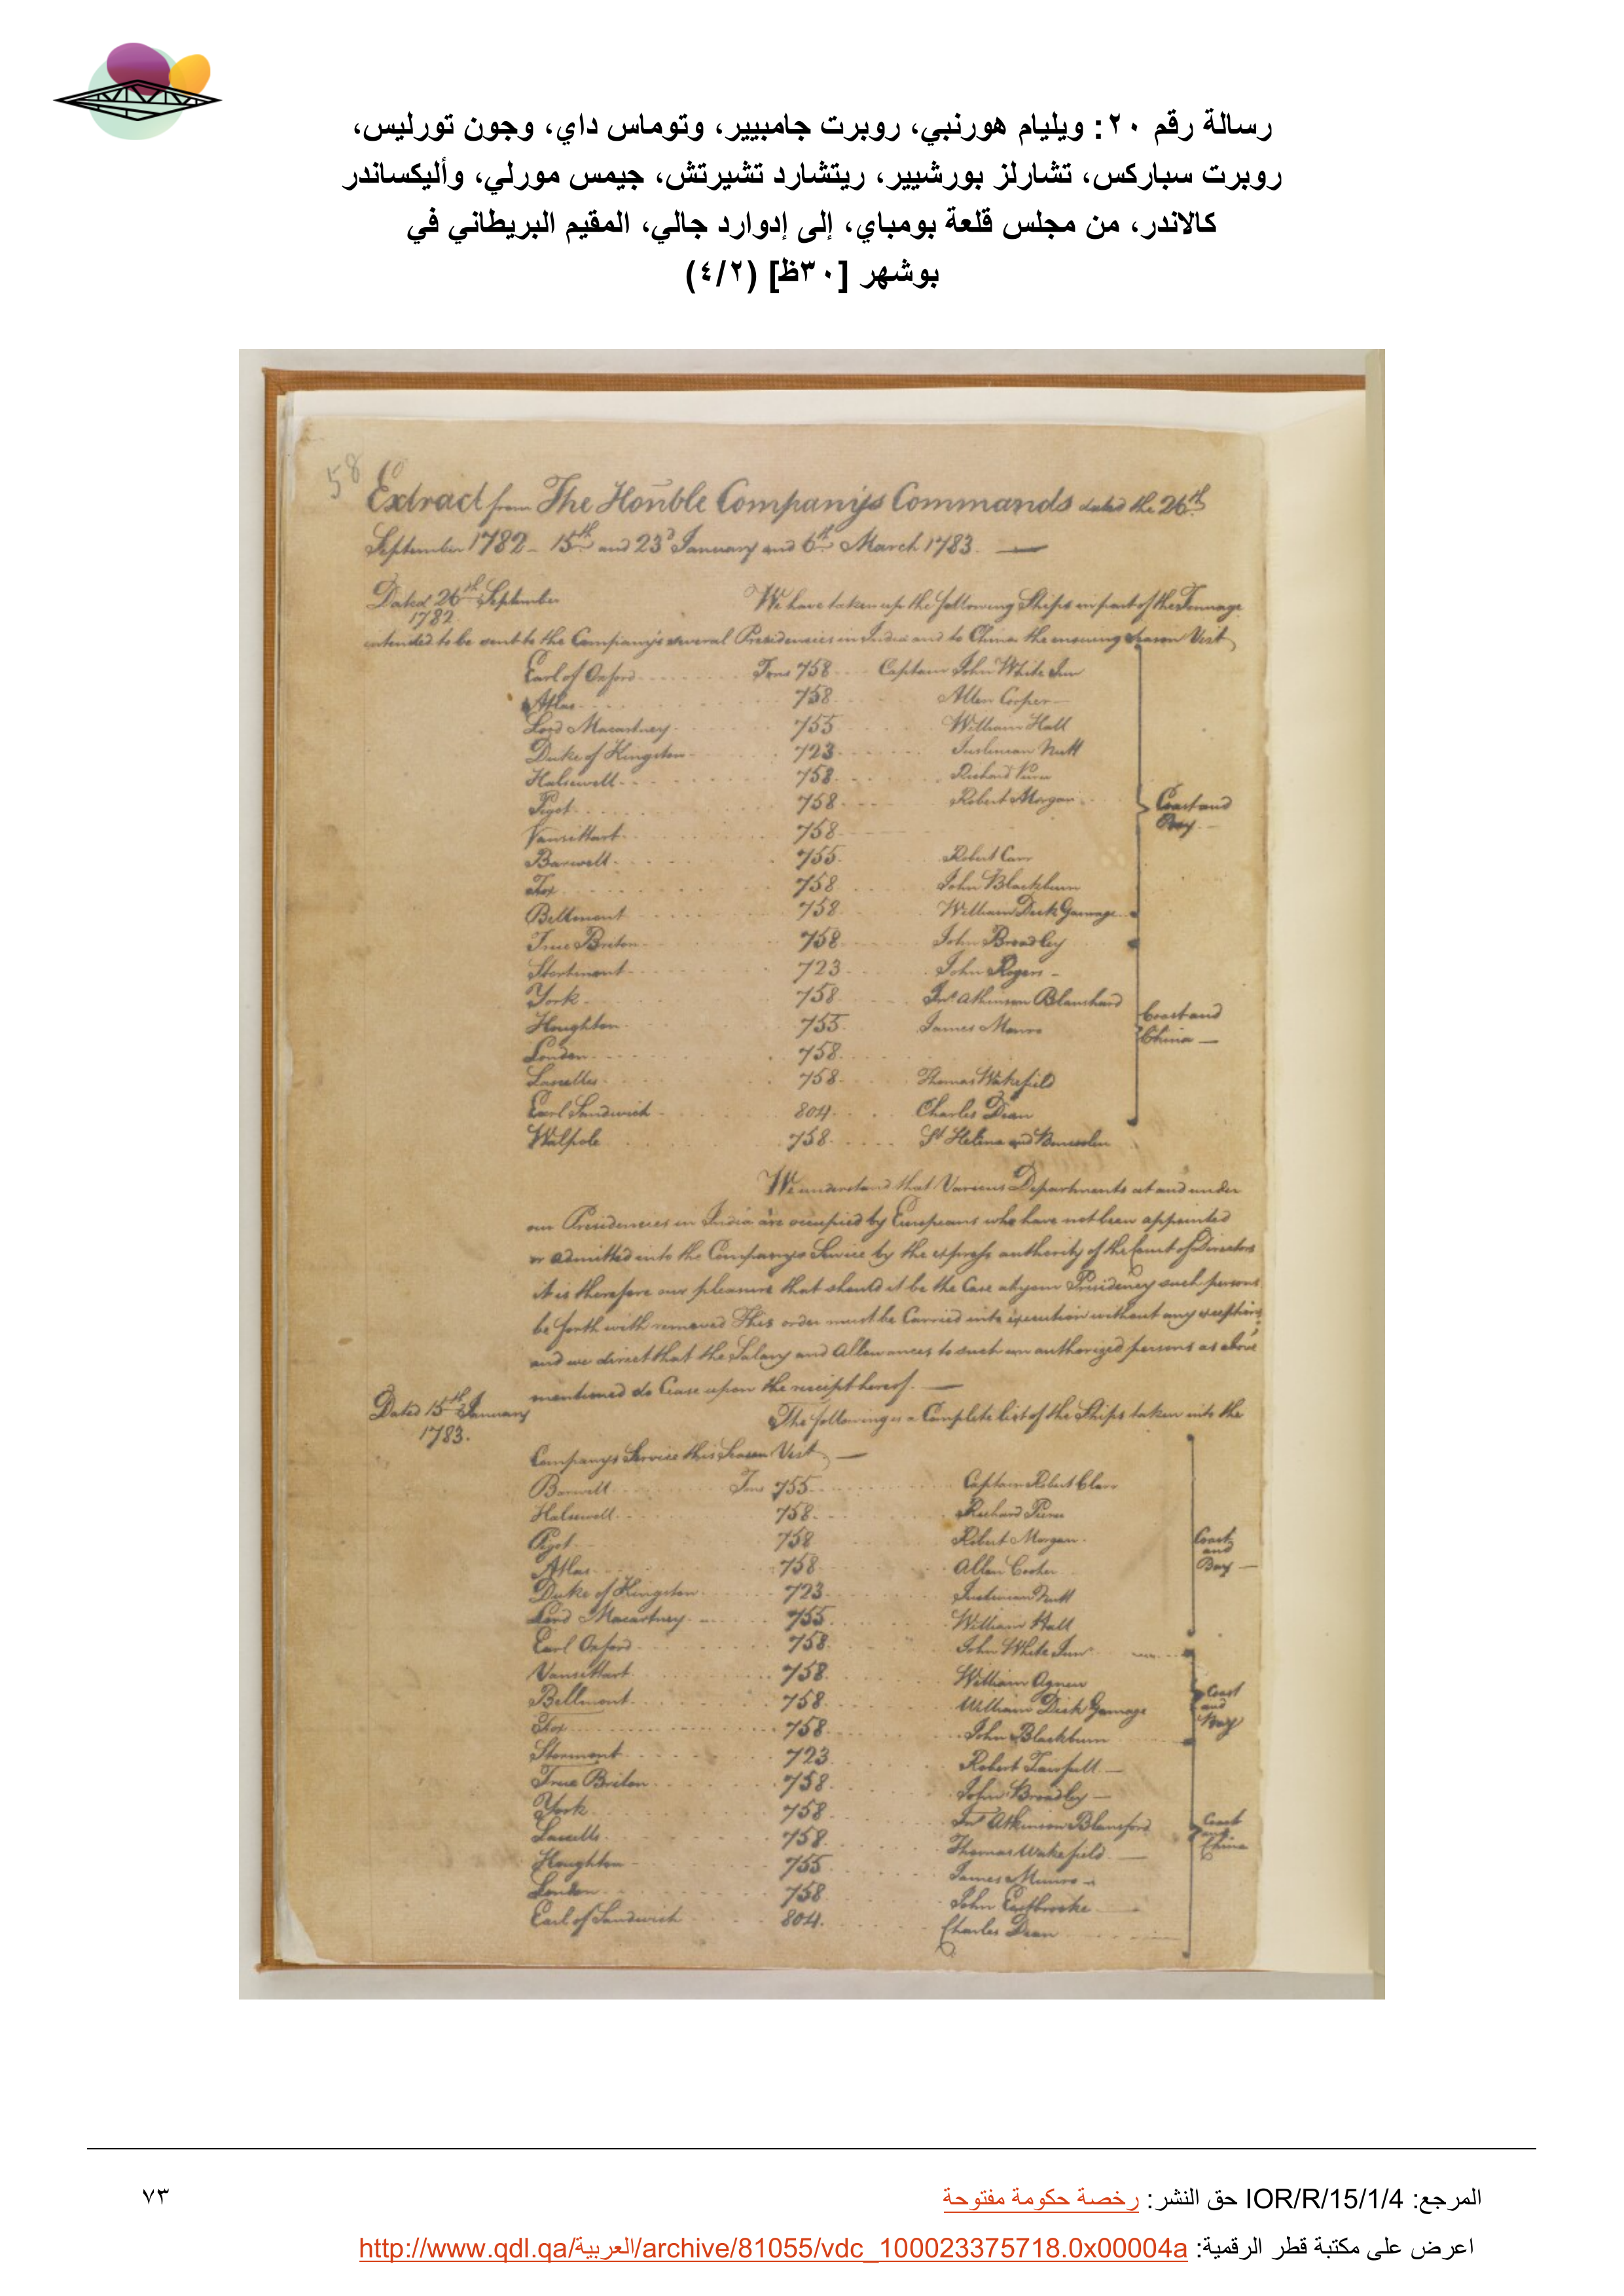 رسالة رقم ٢٠: ويليام هورنبي، روبرت جامبيير، وتوماس داي، وجون تورليس،
روبرت سباركس، تشارلز بورشيير، ريتشارد تشيرتش، جيمس مورلي، وأليكساندر
كالاندر، من مجلس قلعة بومباي، إلى إدوارد جالي، المقيم البريطاني في
بوشهر [٣٠ظ] (٤/٢)
58
Extract from The Honble Companys Commands dated the 26th
September 1782 - 15th and 23d January and 6th March 1783. —
Dated 26th September
1782
We have taken up the following Ships in part of the Tonnage
intended to be sent to the Company's several Presidencies in India and to China the ensuing Season Vizt
Earl of Oxford Tons 758 Captain John White Junr
Atlas 758 Allen Cooper
Lord Macartney 755 William Hall
Duke of Kingston 723 Justinian Nutt
Halsewell 758 Richard Pierce
Pigot 758 Robert Morgan
Vansittart 758
Barwell 755 Robert Carr
Fox 758 John Blackburn
Bellmont 758 William Dick Gamage
Coast and
Bay
True Briton 758 John Broadley
Stormont 723 John Rogers
York 758 Jno Atkinson Blanshard
Houghton 755 James Monro
London 758
Lascelles 758 Thomas Wakefield
Earl Sandwich 804 Charles Dean
Coast and
China
Walpole 758 St Helena and Bencoolen
We understand that Various Departments at and under
our Presidencies in India are occupied by Europeans who have not been appointed
or admitted into the Companys Service by the express authority of the Court of Directors
it is therefore our pleasure that should it be the Case at your Presidency such persons
be forth with removed This order must be Carried into execution without any exceptions
and we direct that the Salary and Allowances to such un authorized persons as above
mentioned do Cease upon the receipt hereof. —
Dated 15th January
1783.
The following is a Complete list of the Ships taken into the
Companys Service this Season Vizt —
Barwell Tons 755 Captain Robert Clare
Halsewell 758 Richard Pierce
Pigot 758 Robert Morgan
Atlas 758 Allan Cooper
Duke of Kingston 723 Justinian Nutt
Lord Macartney 755 William Hall
Coast
and
Bay
Earl Oxford 758 John White Junr
Vansittart 758 William Agnew
Bellmont 758 William Dick Gamage
Fox 758 John Blackburn
Coast
and
Bay
Stormont 723 Robert
True Briton 758 John Broadley
York 758 Jno Atkinson Blansford
Lascells 758 Thomas Wakefield
Houghton 755 James Munro
London 758 John Eastbrooke
Earl of Sandwich 804 Charles Dean
Coast
and
China
المرجع: IOR/R/15/1/4 حق النشر: رخصة حكومة مفتوحة
٧٣
اعرض على مكتبة قطر الرقمية: http://www.qdl.qa/العربية/archive/81055/vdc_100023375718.0x00004a